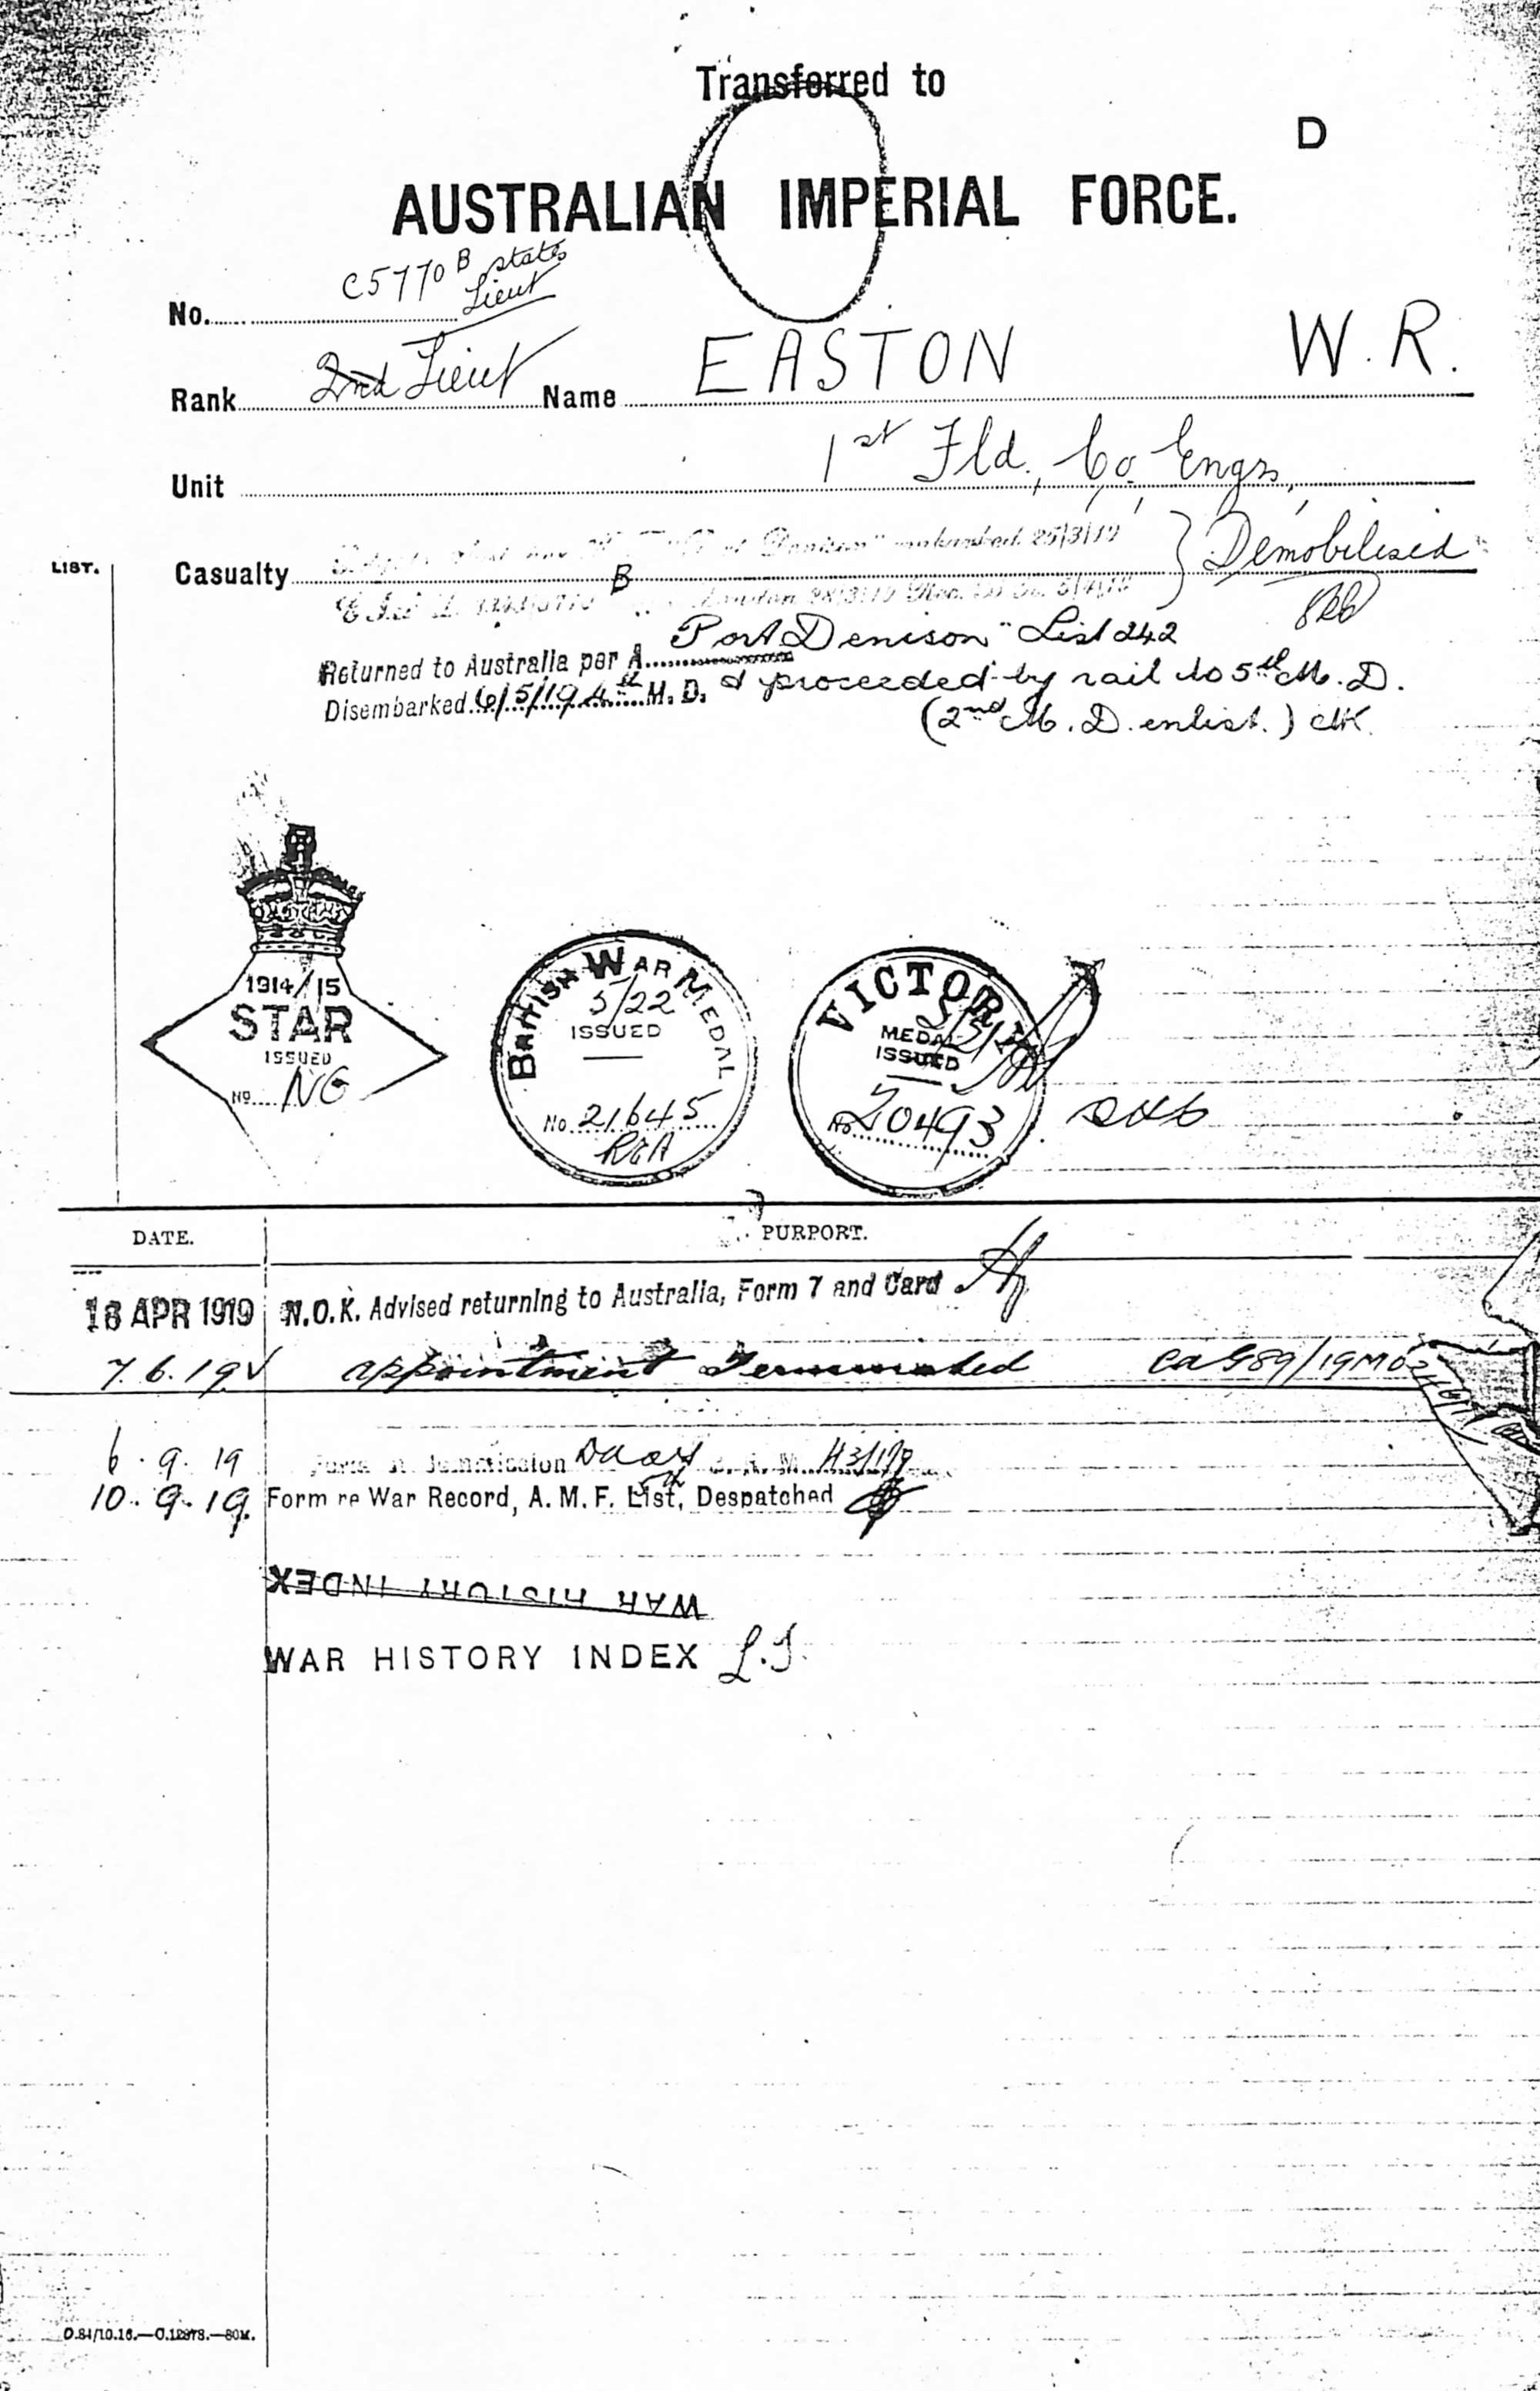 Transferred to
D
AUSTRALIAN IMPERIAL FORCE.
C5770 B states
Lieut
No.
Rank 2nd Lieut Name EASTON W.R.
Unit 1st Fld. Co. Engrs.
LIST.
Casualty embarked 25/3/19 } Demobilised
B London
Returned to Australia per A. "Port Denison" List 242
Disembarked 6/5/19 4th M.D. & proceeded by rail to 5th M.D.
(2nd M.D. enlist.)
1914/15
STAR
ISSUED
No. NG
BRITISH WAR MEDAL
5/22
ISSUED
No. 21645
VICTORY
MEDAL
ISSUED
No. 20493
DATE. PURPORT.
16 APR 1919 N.O.K. Advised returning to Australia, Form 7 and Card
7.6.19 appointment Terminated
6.9.19 Commission
10.9.19 Form re War Record, A. M. F. List, Despatched
WAR HISTORY INDEX
WAR HISTORY INDEX